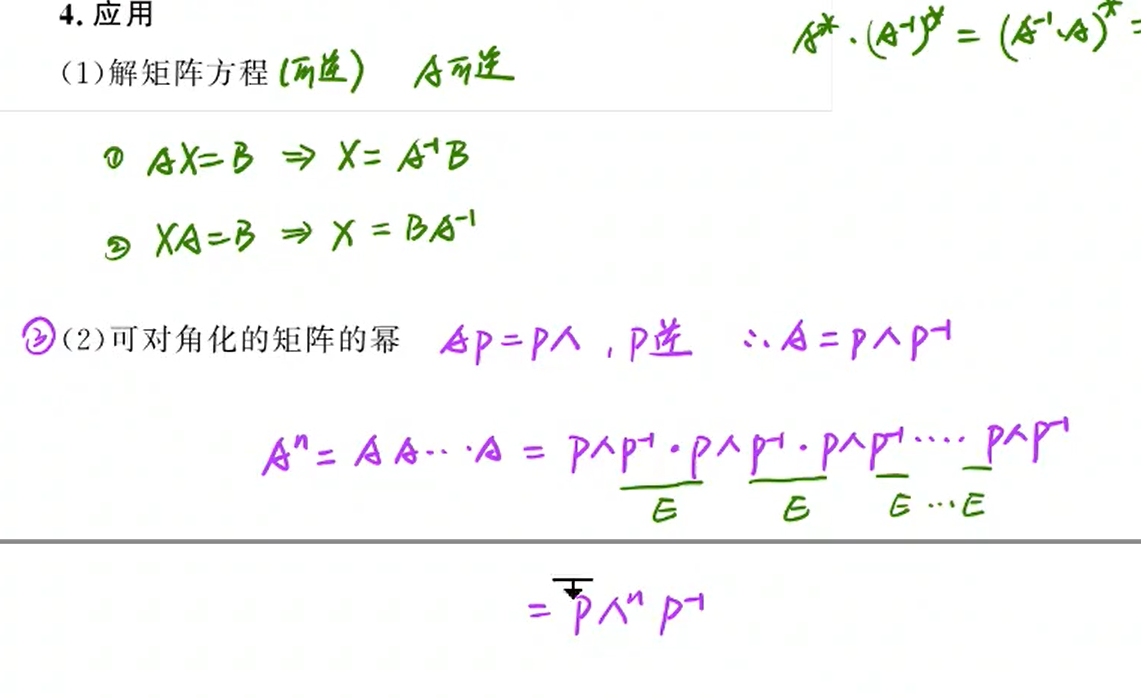 4. 应用
A*·(A⁻¹)* = (A⁻¹·A)* =
(1)解矩阵方程 (可逆) A可逆
① AX=B ⇒ X= A⁻¹B
② XA=B ⇒ X = BA⁻¹
③(2)可对角化的矩阵的幂 AP=PΛ , P逆 ∴A=PΛP⁻¹
Aⁿ= A A···A = PΛP⁻¹·PΛP⁻¹·PΛP⁻¹···· PΛP⁻¹
E E E ···E
= PΛⁿP⁻¹